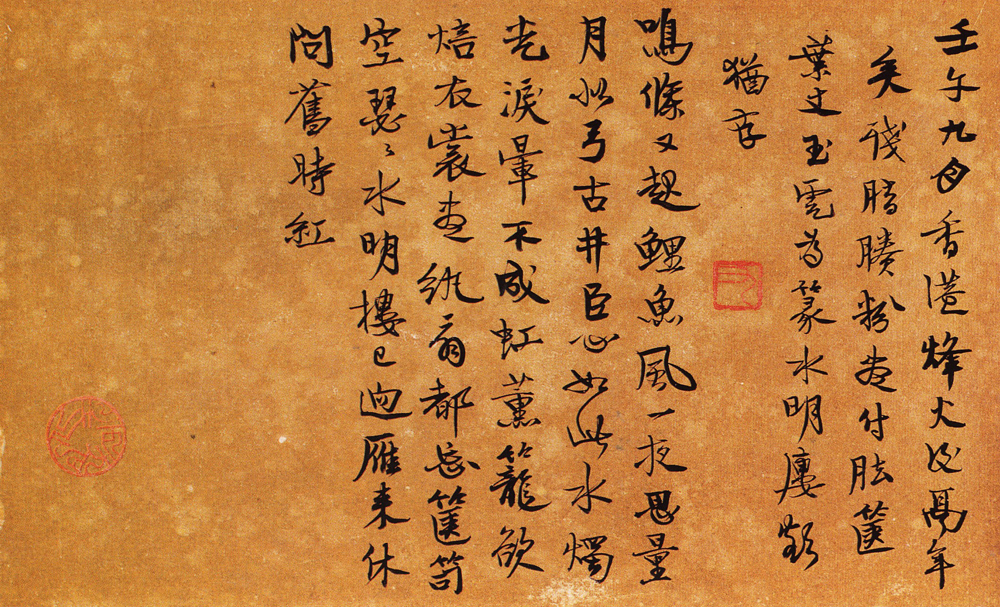 壬午九月香港烽火年
矣殘脂賸粉盡付胠篋
葉丈玉虎為篆水明廔額
猶存
鳴條又起鯉魚風一夜思量
月似弓古井臣心如此水燭
光淚暈不成虹薰籠欲
焙衣裳盡紈扇都忘篋笥
空瑟〻水明樓已迥雁來休
問舊時紅